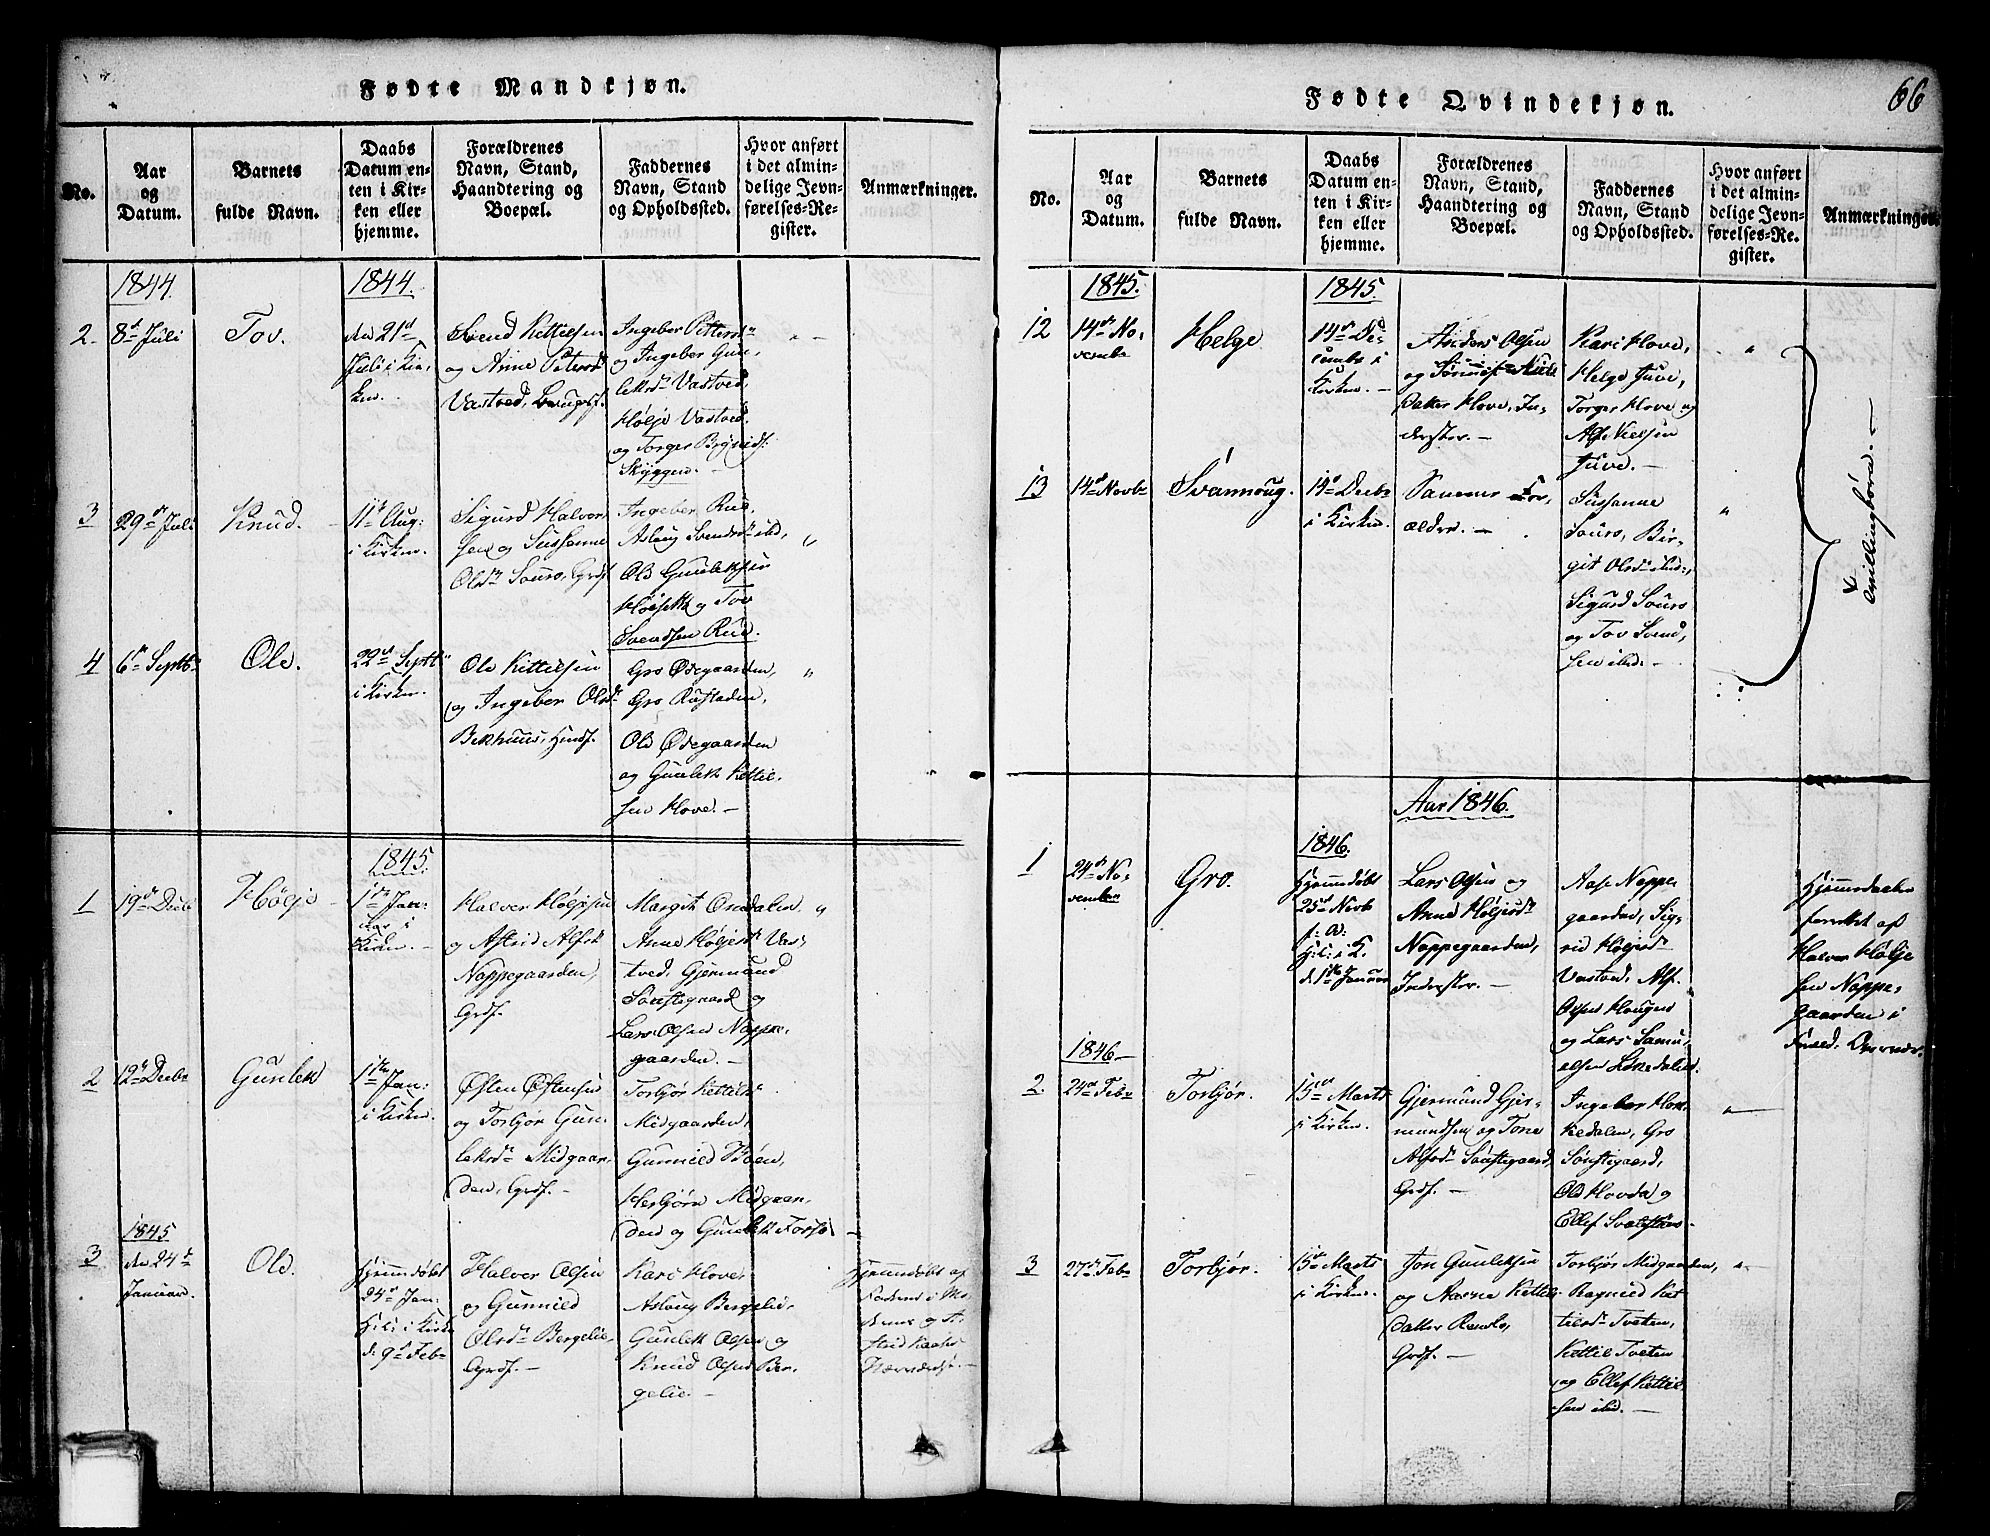 Fødte Mandkjøn.
No.
Aar
og
Datum.
Barnets
fulde Navn.
Daabs
Datum en-
ten i Kir-
ken eller
hjemme.
Forældrenes
Navn, Stand,
Haandtering og
Boepæl.
Faddernes
Navn, Stand
og Opholdssted.
Hvor anført
i det almin-
delige Jevn-
førelses-Re-
gister.
Anmærkninger.
1844.
1844.
2.
8d Juli
Tov.
den 21d
Juli i Kir,
ken.
Svend Kittilsen
og Anne Petersd
Vastved,
Ingeber Pettersd
og Ingeber Gun,
leksd Vastved,
Høljе Vastved
og Torger
Skyggen. —
3
29d Juli
Knud.
11t Aug:
i Kirken.
Sigurd Halvor
sen og Sussanne
Olsd Souro, Grdf
Ingeber Rue,
Aslaug Svendsd ibd,
Ole Gunleksen
og Tov
Svendsen Rue.
4
6t Septb
Ole.
22d Septb
i Kirken.
Ole Kittilsen
og Ingeber Olsd
Bekhuus,
Gro Ødegaarden,
Gro Rustaden,
Ole Ødegaarden
og Gunlek Kettil-
sen Hove. —
1845.
1
19d Decb
Høljе
1te Jan:
i
Kirken. —
Halvor Høljesen
og Astrid Alfsd
Noppegaarden,
Grdf.
Margit
Anne Høljesd Vas,
tved, Gjermund
Sønstegaard og
Lars Olsen Noppe,
gaarden. —
2
12t Decb
Gunlek
1te Jan:
i Kirken.
Østen Østensen
og Torbjør Gun,
leksd Midgaar,
den, Grdf. —
Torbjør Kettilsd
Midgaarden,
Gunnild Bøen,
Herbjørn Midgaar,
den og Gunlek
1845
3
den 24d
Januar.
Ole.
Hjemmedøbt
24d Jan:
i Kirke
d: 9d Feb
Halvor Olsen
og Gunnild
Olsd Bergelie,
Grdf. —
Kari Hove,
Aslaug Bergelie,
Gunlek Olsen og
Knud Olsen Ber-
gelie. —
Hjemmedøbt af
Fødte Qvindekjøn.
66
No.
Aar
og
Datum.
Barnets
fulde Navn.
Daabs
Datum en-
ten i Kir-
ken eller
hjemme.
Forældrenes
Navn, Stand,
Haandtering og
Boepæl.
Faddernes
Navn, Stand
og Opholdssted.
Hvor anført
i det almin-
delige Jevn-
førelses-Re-
gister.
Anmærkninger.
1845.
1845.
12
14d No,
vembr
Helge
14d De,
cember i
Kirken. —
Anders Olsen
og
datter Hove, In,
derster. —
Kari Hove,
Helge Juve,
Torger Hove og
Alf Nielsen
Juve. —
13
14d Novb
Svannoug.
14d Decb
i Kirken.
Samme For,
ældre. —
Sussanne
Souro, Bir-
git Olsd ibid:,
Sigurd Souro
og Tov Svend,
sen ibid. —
Tvillingbørn. —
Aar 1846.
1846.
1
24d No,
vember
Gro.
Hjemmedøbt
25d Novb
d: 1te Januar
Lars Olsen og
Anne Høljesd
Noppegaarden,
Inderster. —
Aase Noppe,
gaarden, Sig-
rid Høljesd
Vastved, Alf
Olsen Haugen
og Lars Samu,
elsen
Hjemmedaaben
forrettet af
Halvor Hølje
sen Noppe,
gaarden i
1846 —
2.
24d Feb
Torbjør.
15d Marts
i Kirken.
Gjermund Gjer-
mundsen og Tone
Alfsd Sønstegaard,
Grdf. —
Ingeber
Gro
Sønstegaard,
Ole Hovda og
Ellef
3
27d Feb
Torbjør.
15d Marts
i Kirken.
Jon Gunleksen
og Kettils-
datter
Grdf. —
Torbjør Midgaarden,
Ragnild Ket
tilsd Tveten,
Kettil Tveten
og Ellef Kettil
sen ibid —